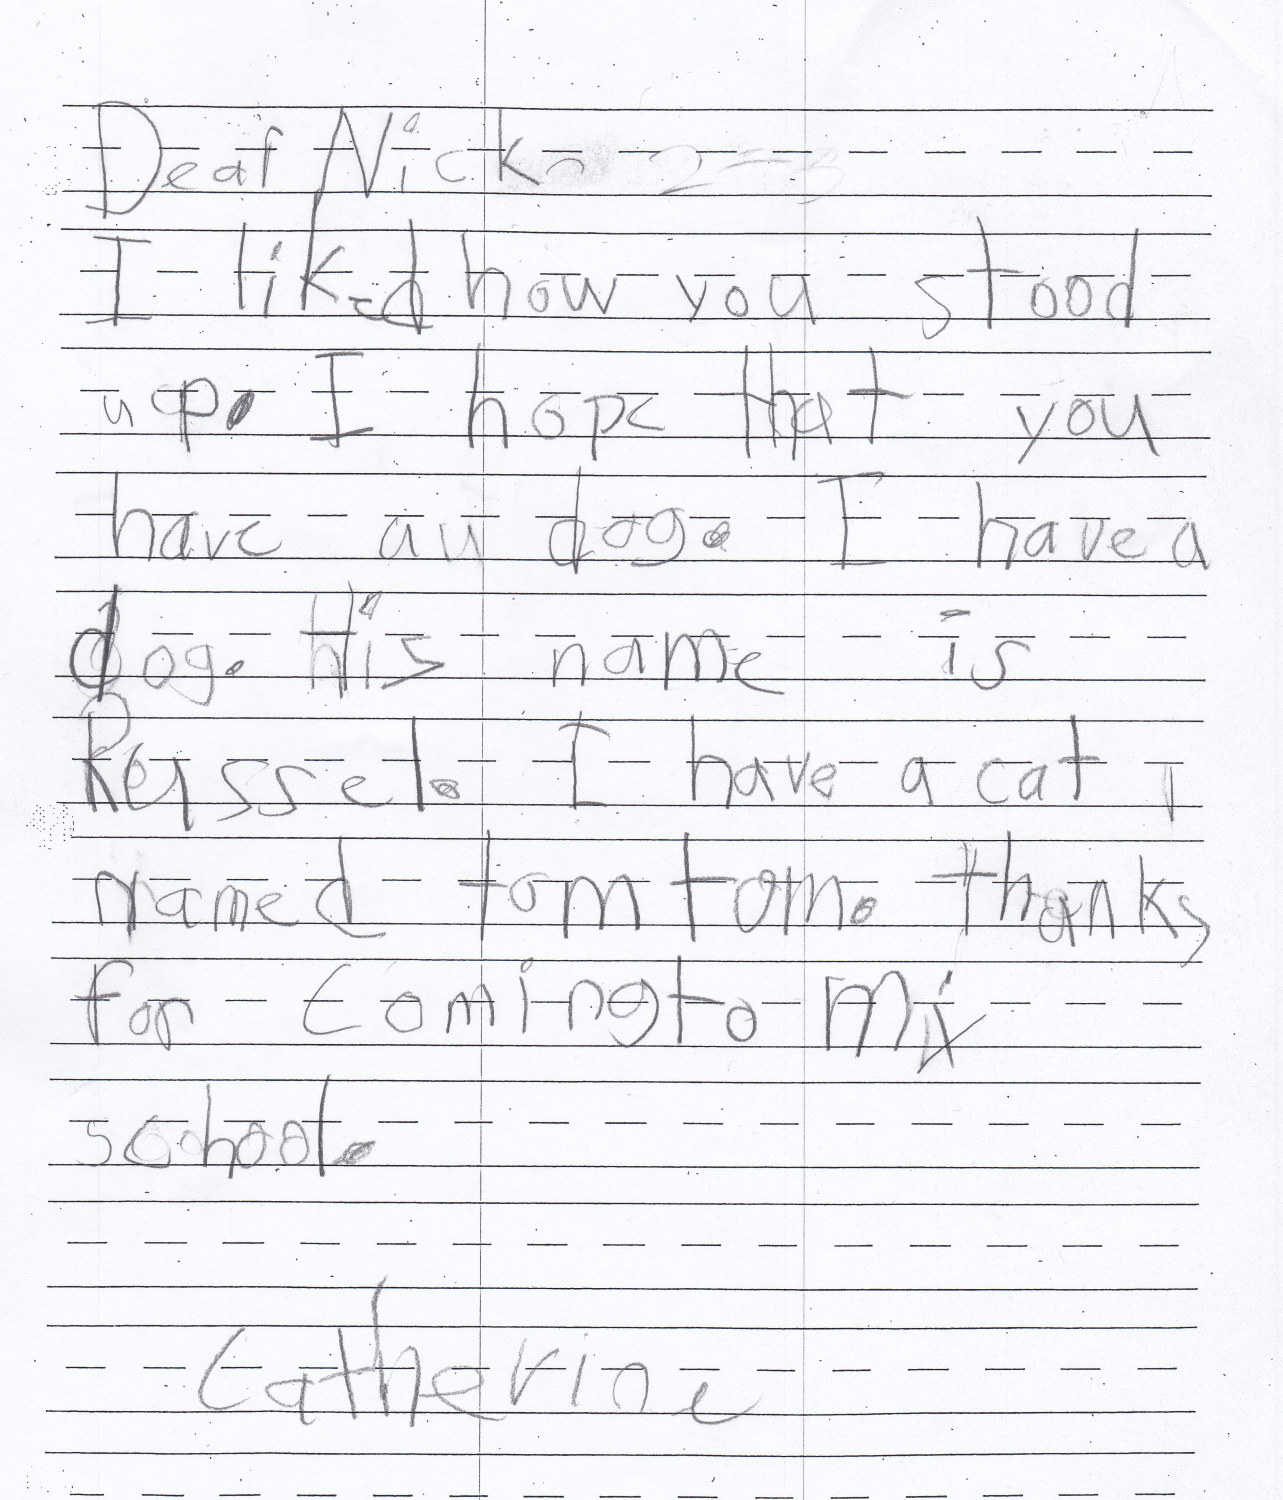 Dear Nick
I liked how you stood
up. I hope that you
have au dog. I have a
dog. His name is
I have a cat
named tom tom. thanks
for coming to mi
school.
Catherine